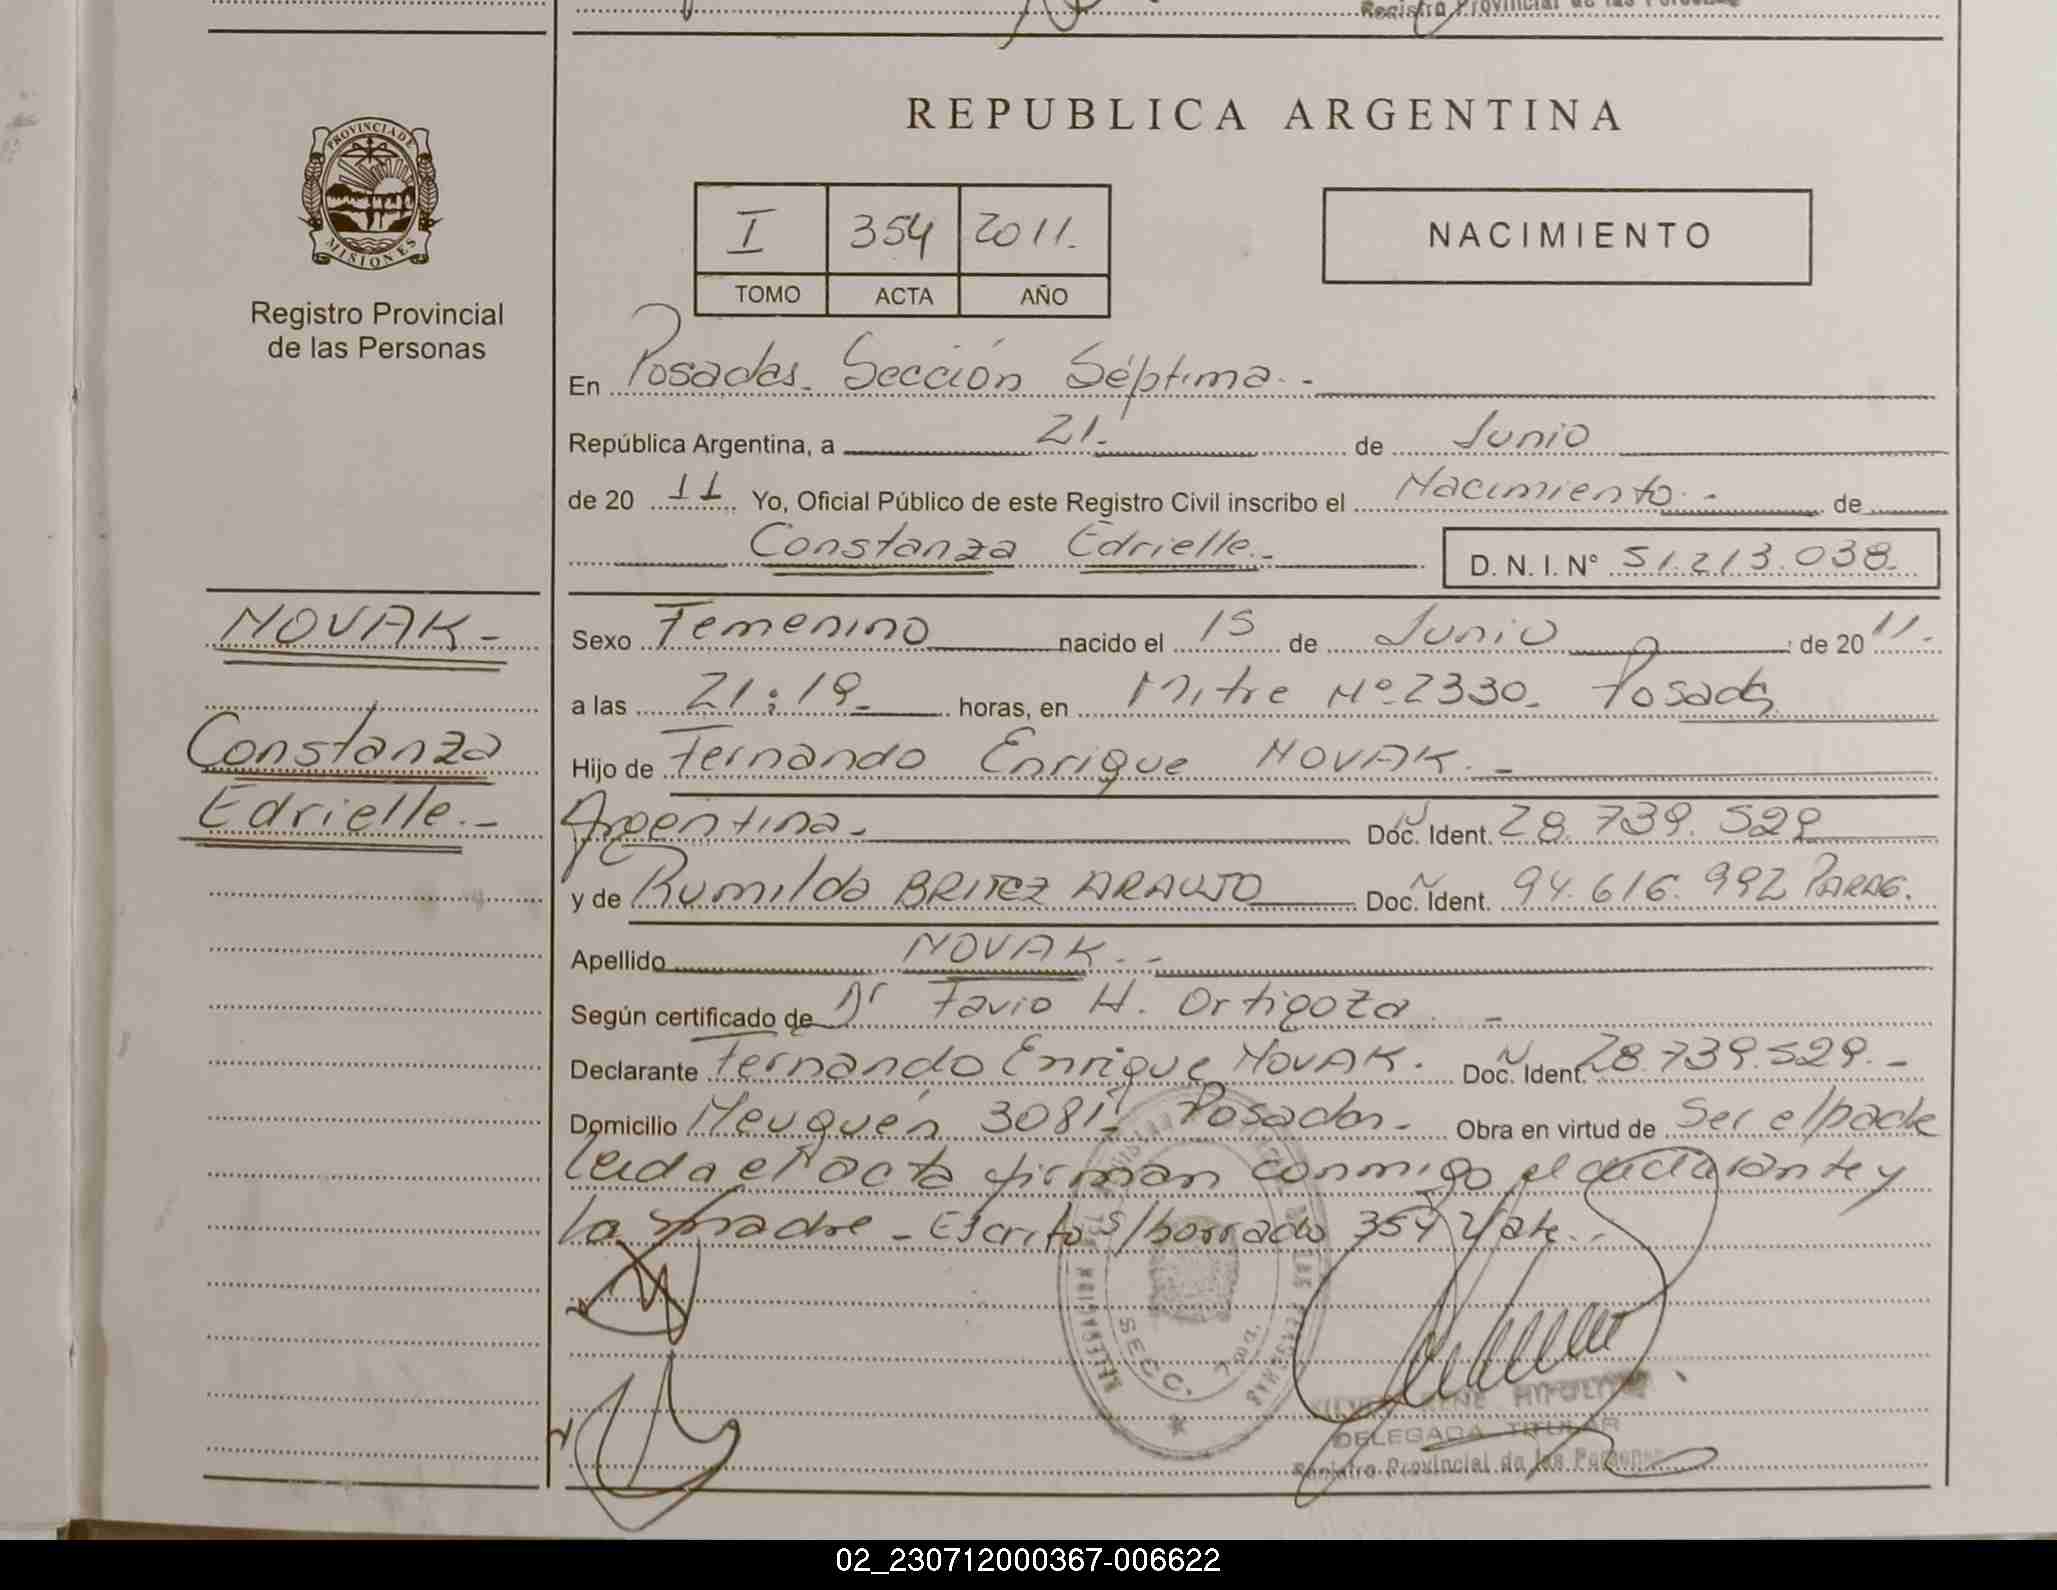 Registro Provincial de las Personas
PROVINCIA DE
MISIONES
Registro Provincial
de las Personas
REPUBLICA ARGENTINA
I 354 2011.
TOMO ACTA AÑO
NACIMIENTO
En Posadas. Sección Séptima.-
República Argentina, a 21. de Junio
de 20 11 Yo, Oficial Público de este Registro Civil inscribo el Nacimiento.- de
Constanza Edrielle.- D. N. I. N° 51.213.038.
NOVAK.-
Constanza
Edrielle.-
Sexo Femenino nacido el 15 de Junio de 20 11.
a las 21:19 horas, en Mitre Nº 2330. Posadas
Hijo de Fernando Enrique NOVAK.-
Argentina.- Doc. Ident. 28.739.529
y de Rumilda BRITEZ ARAUJO Doc. Ident. 94.616.992 PARAG.
Apellido NOVAK.-
Según certificado de Dr Favio H. Ortigoza -
Declarante Fernando Enrique NOVAK. Doc. Ident. 28.739.529.-
Domicilio Neuquén 3081- Posadas.- Obra en virtud de Ser el padre
Leida el acta firman conmigo el declarante y
la madre - Escrito s/borrado 354 Vale.-
SECC. 7ma.
RENE
DELEGADA TITULAR
Registro Provincial de las Personas
02_230712000367-006622